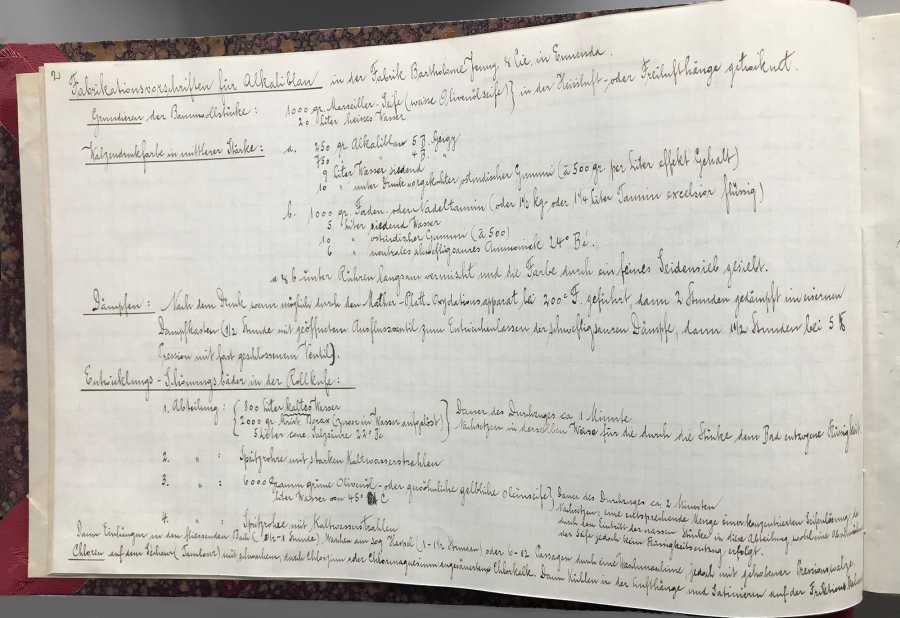 2
Fabrikationsvorschriften für Alkaliblau in der Fabrik Bartholomé Jenny & Cie. in Ennenda.
Grundieren der Baumwollstücke: 1000 gr. Marseiller-Seife (weisse Olivenölseife) } in der Heissluft- oder Freilufthänge getrocknet.
20 Liter heisses Wasser
Walzendruckfarbe in mittlerer Stärke: a. 250 gr. Alkaliblau 5 B. Geigy
750 " " 4 B. "
9 Liter Wasser siedend
10 " unter Druck vorgekochter ostindischer Gummi (à 500 gr. per Liter effekt Gehalt)
b. 1000 gr. Faden- oder Nadeltannin (oder 1½ kg- oder 1¼ Liter Tannin excelsior flüssig)
5 Liter siedend Wasser
10 " ostindischer Gummi (à 500)
6 " neutrales schwefligsaures Ammoniak 24° Bé.
a & b unter Rühren langsam vermischt und die Farbe durch ein feines Seidensieb gesiebt.
Dämpfen: Nach dem Druck wenn möglich durch den Mather-Platt-Oxydationsapparat bei 200° F. geführt, dann 2 Stunden gedämpft im eisernen
Dampfkasten (½ Stunde mit geöffnetem Ausflussventil zum Entweichenlassen der schwefligsauren Dämpfe, dann 1½ Stunden bei 5 ℔
Pression mit fast geschlossenem Ventil).
Entwicklungs- Schönungsbäder in der Rollkufe:
1. Abteilung: { 800 Liter kaltes Wasser } Dauer des Durchzuges ca. 1 Minute.
2000 gr. Borax (zuvor in Wasser aufgelöst) Nachsetzen in derselben Weise für die durch die Stücke dem Bad entzogene Flüssigkeit
5 Liter conc. Salzsäure 22° Bé
2. " : Spritzrohre mit starken Kaltwasserstrahlen
3. " : 6000 Gramm grüne Olivenöl- oder gewöhnliche gelbliche Oleinseife } Dauer des Durchzuges ca. 2 Minuten.
Liter Wasser von 45° C Nachsetzen: eine entsprechende Menge einer konzentrierten Seifenlösung, da
durch den Eintritt der nassen Stücke in diese Abteilung wohl eine
der Seife jedoch kein Flüssigkeitsentzug erfolgt.
4. " : Spritzrohre mit Kaltwasserstrahlen
Dann Einlängen in den fliessenden Bach (½-1 Stunde), Waschen am sog. Haspel (1-1½ Stunden) oder 6-12 Passagen durch eine Waschmaschine jedoch mit gehobener Pressionswalze,
Chloren auf dem Séchoir (Tambour) mit schwachem, durch Chlorzinn oder Chlormagnesium angesäuertem Chlorkalk. Dann Kühlen in der Lufthänge und Satinieren auf der Friktions